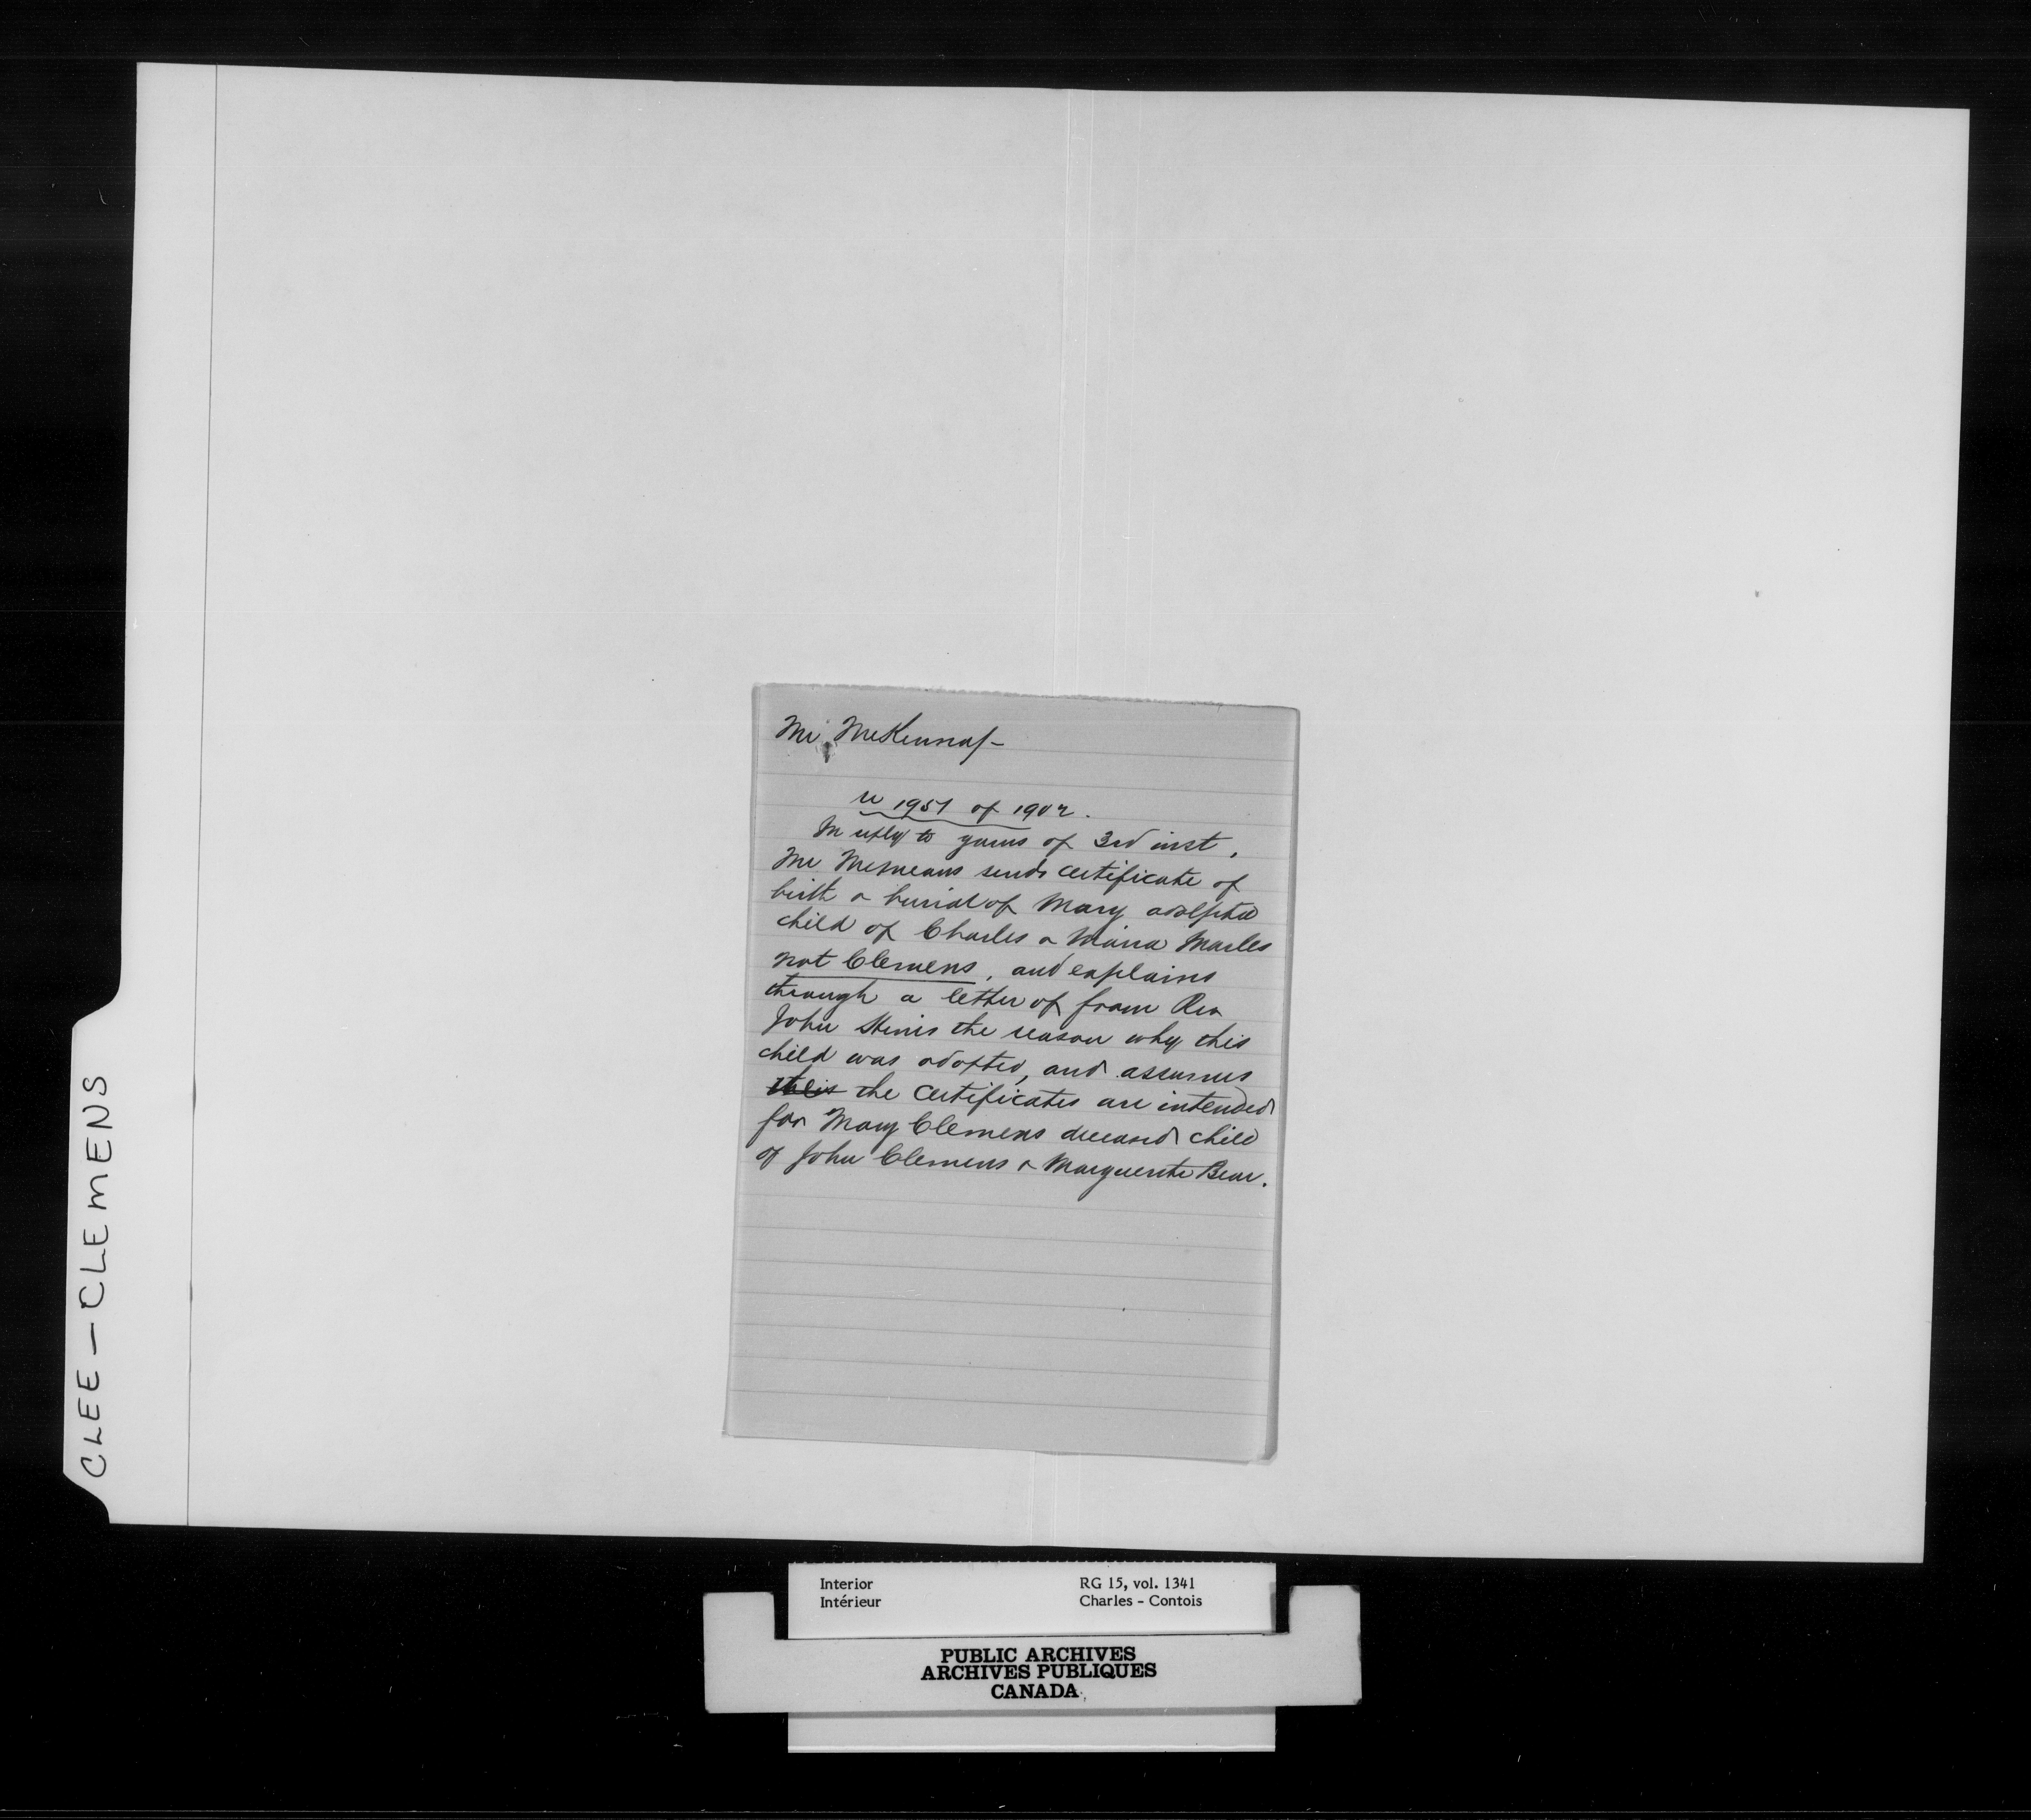 CLEE – CLEMENS
Mr McKenna –
re 1951 of 1902.
In reply to yours of 3rd inst,
Mr McMeans sends certificate of
birth & burial of Mary adopted
child of Charles & Maria Marles
not Clemens, and explains
through a letter of from Rev
John Sinis the reason why this
child was adopted, and assumes
the certificates are intended
for Mary Clemens deceased child
of John Clemens & Marguerite Bear.
Interior RG 15, vol. 1341
Intérieur Charles – Contois
PUBLIC ARCHIVES
ARCHIVES PUBLIQUES
CANADA